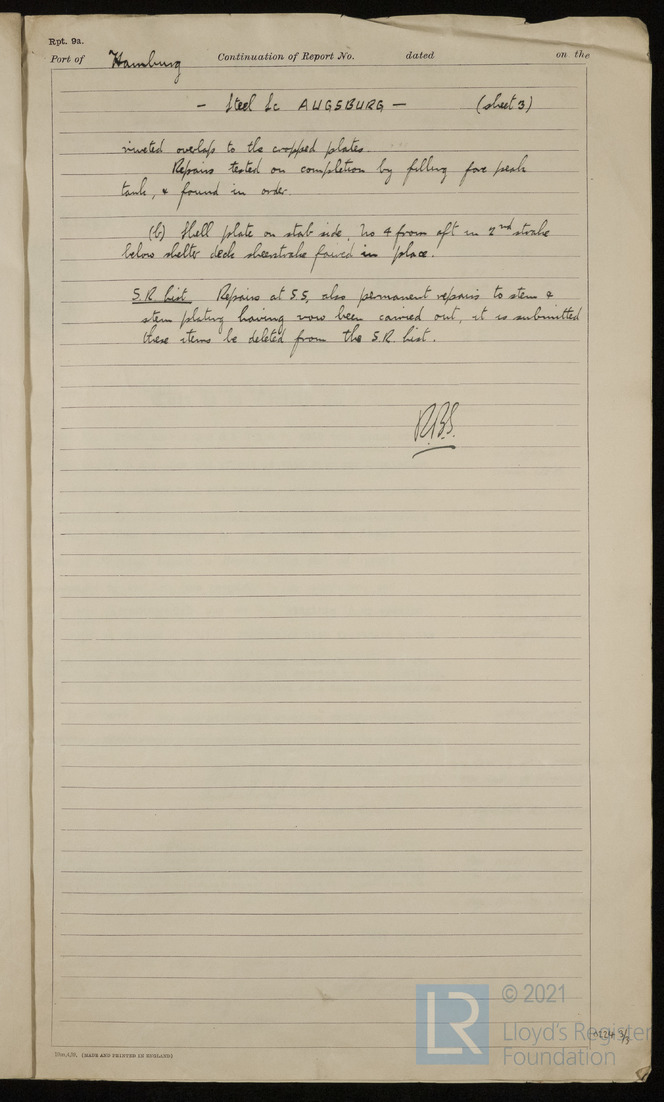 Rpt. 9a.
Port of Hamburg Continuation of Report No. dated on the
- Steel Sc AUGSBURG - (sheet 3)
riveted overlap to the cropped plates.
Repairs tested on completion by filling fore peak
tank, & found in order.
(b) Shell plate on stab side, No 4 from aft in 2nd strake
below shelter deck sheerstrake faired in place.
S.R. List Repairs at S.S, also permanent repairs to stem &
stem plating having now been carried out, it is submitted
these items be deleted from the S.R. list.
R.B.S.
(MADE AND PRINTED IN ENGLAND)
LR
© 2021
Lloyd's Register
Foundation
3/3